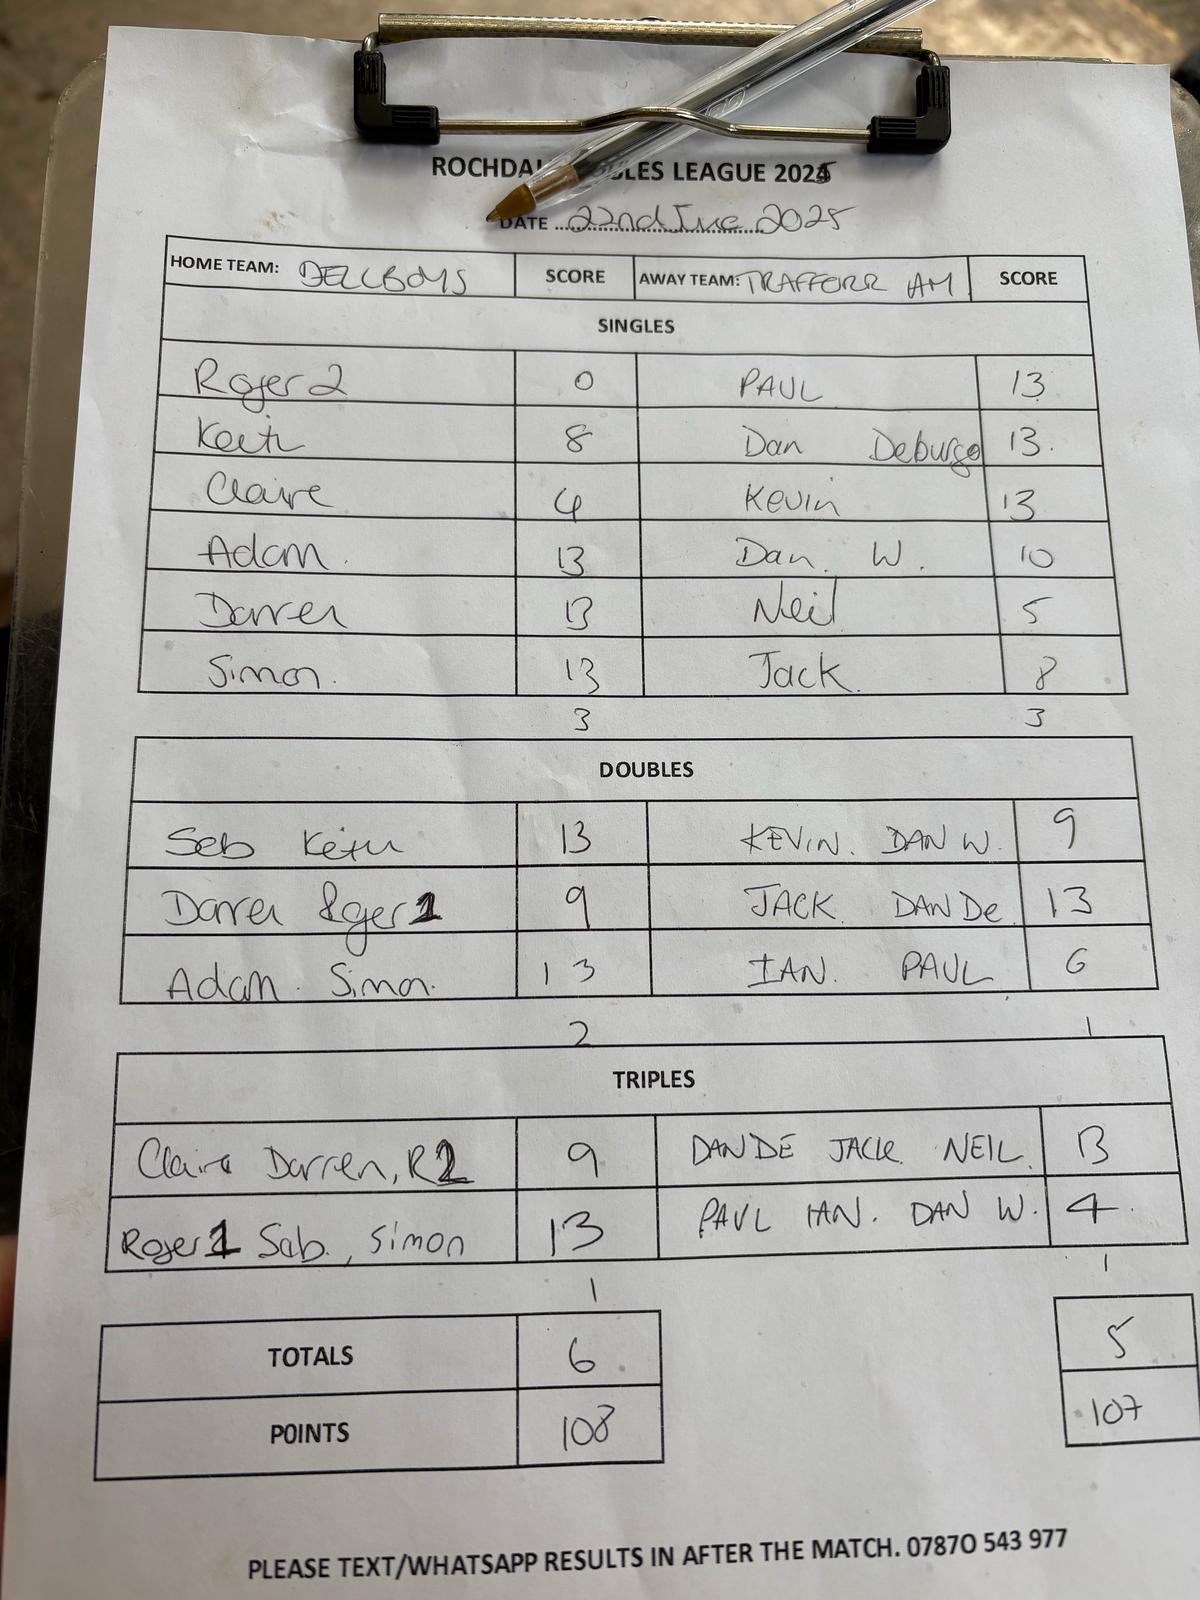 ROCHDA ULES LEAGUE 2025
DATE 22nd June 2025
HOME TEAM: DELLBOYS SCORE AWAY TEAM: TRAFFORR AM SCORE
SINGLES
Roger 2 0 PAUL 13
Keith 8 Dan Deburgo 13.
Claire 4 Kevin 13
Adam. 13 Dan. W. 10
Darren 13 Neil 5
Simon. 13 Jack. 8
3 3
DOUBLES
Seb Keith 13 KEVIN. DAN W. 9
Darren Roger 1 9 JACK. DAN De 13
Adam. Simon. 13 IAN. PAUL 6
2 1
TRIPLES
Claire Darren, R2 9 DANDE JACK. NEIL. 13
Roger 1 Seb., Simon 13 PAUL IAN. DAN W. 4.
1 1
TOTALS 6 5
POINTS 108 107
PLEASE TEXT/WHATSAPP RESULTS IN AFTER THE MATCH. 07870 543 977